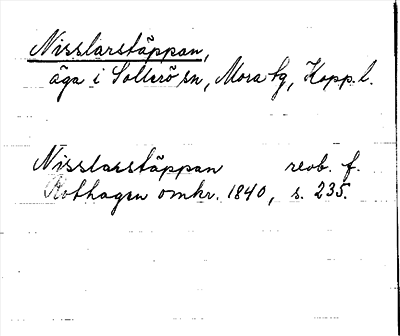 Nisslarstäppan,
äga i Sollerö sn, Mora tg, Kopp. l.
Nisslarstäppan reob. f.
Rothagen omkr. 1840, s. 235.